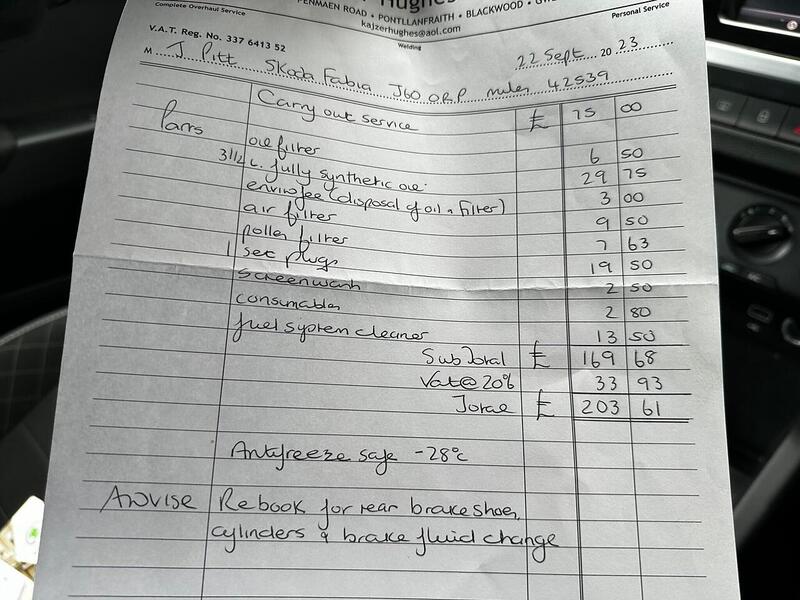 Hughes
Complete Overhaul Service
PENMAEN ROAD • PONTLLANFRAITH • BLACKWOOD •
Personal Service
kajzerhughes@aol.com
Welding
V.A.T. Reg. No. 337 6413 52
22 Sept 20 23
M J Pitt Skoda Fabia J60 ORP miles 42539
Carry out service £ 75 00
Parts
oil filter 6 50
3 1/2 L. fully synthetic oil. 29 75
enviro fee (disposal of oil & filter) 3 00
air filter 9 50
pollen filter 7 63
1 set plugs 19 50
screenwash 2 50
consumables 2 80
fuel system cleaner 13 50
Sub Total £ 169 68
Vat @ 20% 33 93
Total £ 203 61
Antifreeze safe -28°c
ADVISE Rebook for rear brake shoes,
cylinders & brake fluid change